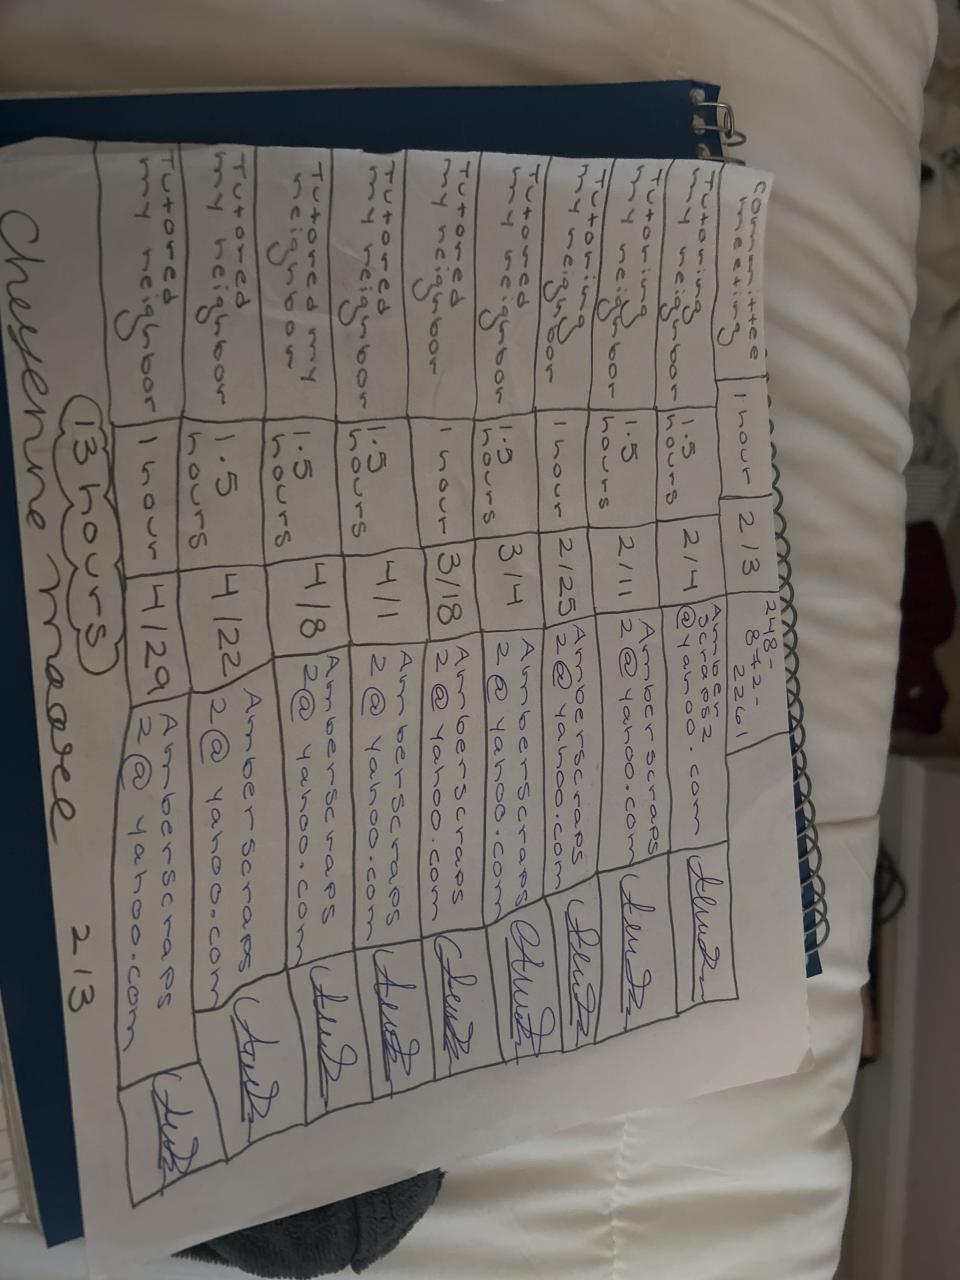 committee
meeting
1 hour
2/3
248-
8+2-
2261
Tutoring
my neighbor
1.5
hours
2/4
Amber
scraps2
@yahoo.com
Tutoring
my neighbor
1.5
hours
2/11
Amberscraps
2@yahoo.com
Tutoring
my neighbor
1 hour
2/25
Amberscraps
2@yahoo.com
Tutored
my neighbor
1.5
hours
3/4
Amberscraps
2@yahoo.com
Tutored
my neighbor
1 hour
3/18
Amberscraps
2@yahoo.com
Tutored
my neighbor
1.5
hours
4/1
Amberscraps
2@yahoo.com
Tutored my
neighbor
1.5
hours
4/8
Amberscraps
2@yahoo.com
Tutored
my neighbor
1.5
hours
4/22
Amberscraps
2@yahoo.com
Tutored
my neighbor
1 hour
4/29
Amberscraps
2@yahoo.com
13 hours
moore 2/3